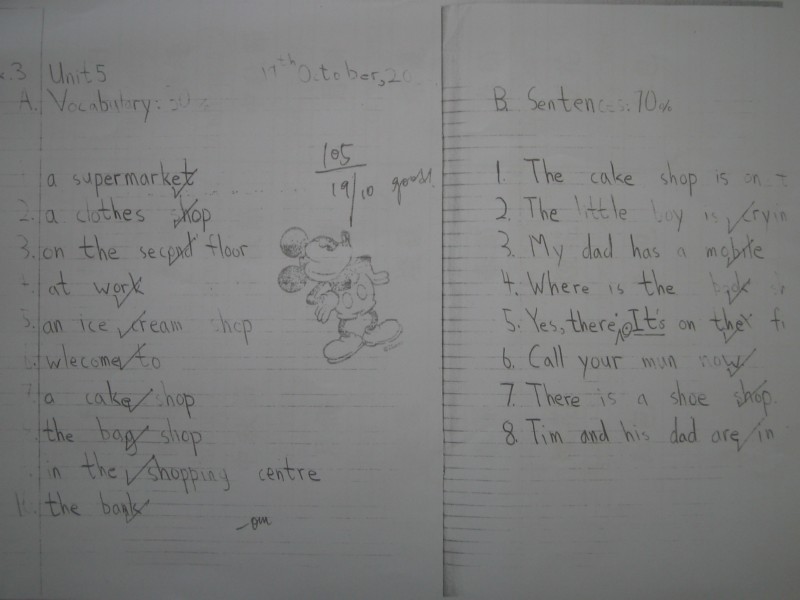 3 Unit5
17th October, 20
A. Vocabulary:
105
19/10 good
a supermarket
2. a clothes shop
3. on the second floor
at work
5. an ice cream shop
wlecome to
7. a cake shop
the bag shop
in the shopping centre
the bank
B. Sentences: 70%
1. The cake shop is on t
2. The little boy is cryin
3. My dad has a mobile
4. Where is the
5. Yes, there, It's on the f
6. Call your mun now
7. There is a shoe shop.
8. Tim and his dad are in